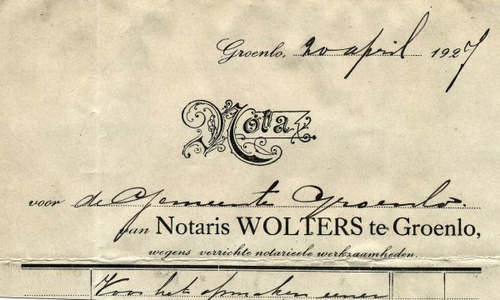 Groenlo, 20 april 1927
Nota
voor de Gemeente Groenlo.
van Notaris WOLTERS te Groenlo,
wegens verrichte notarieele werkzaamheden.
Voor het opmaken eener